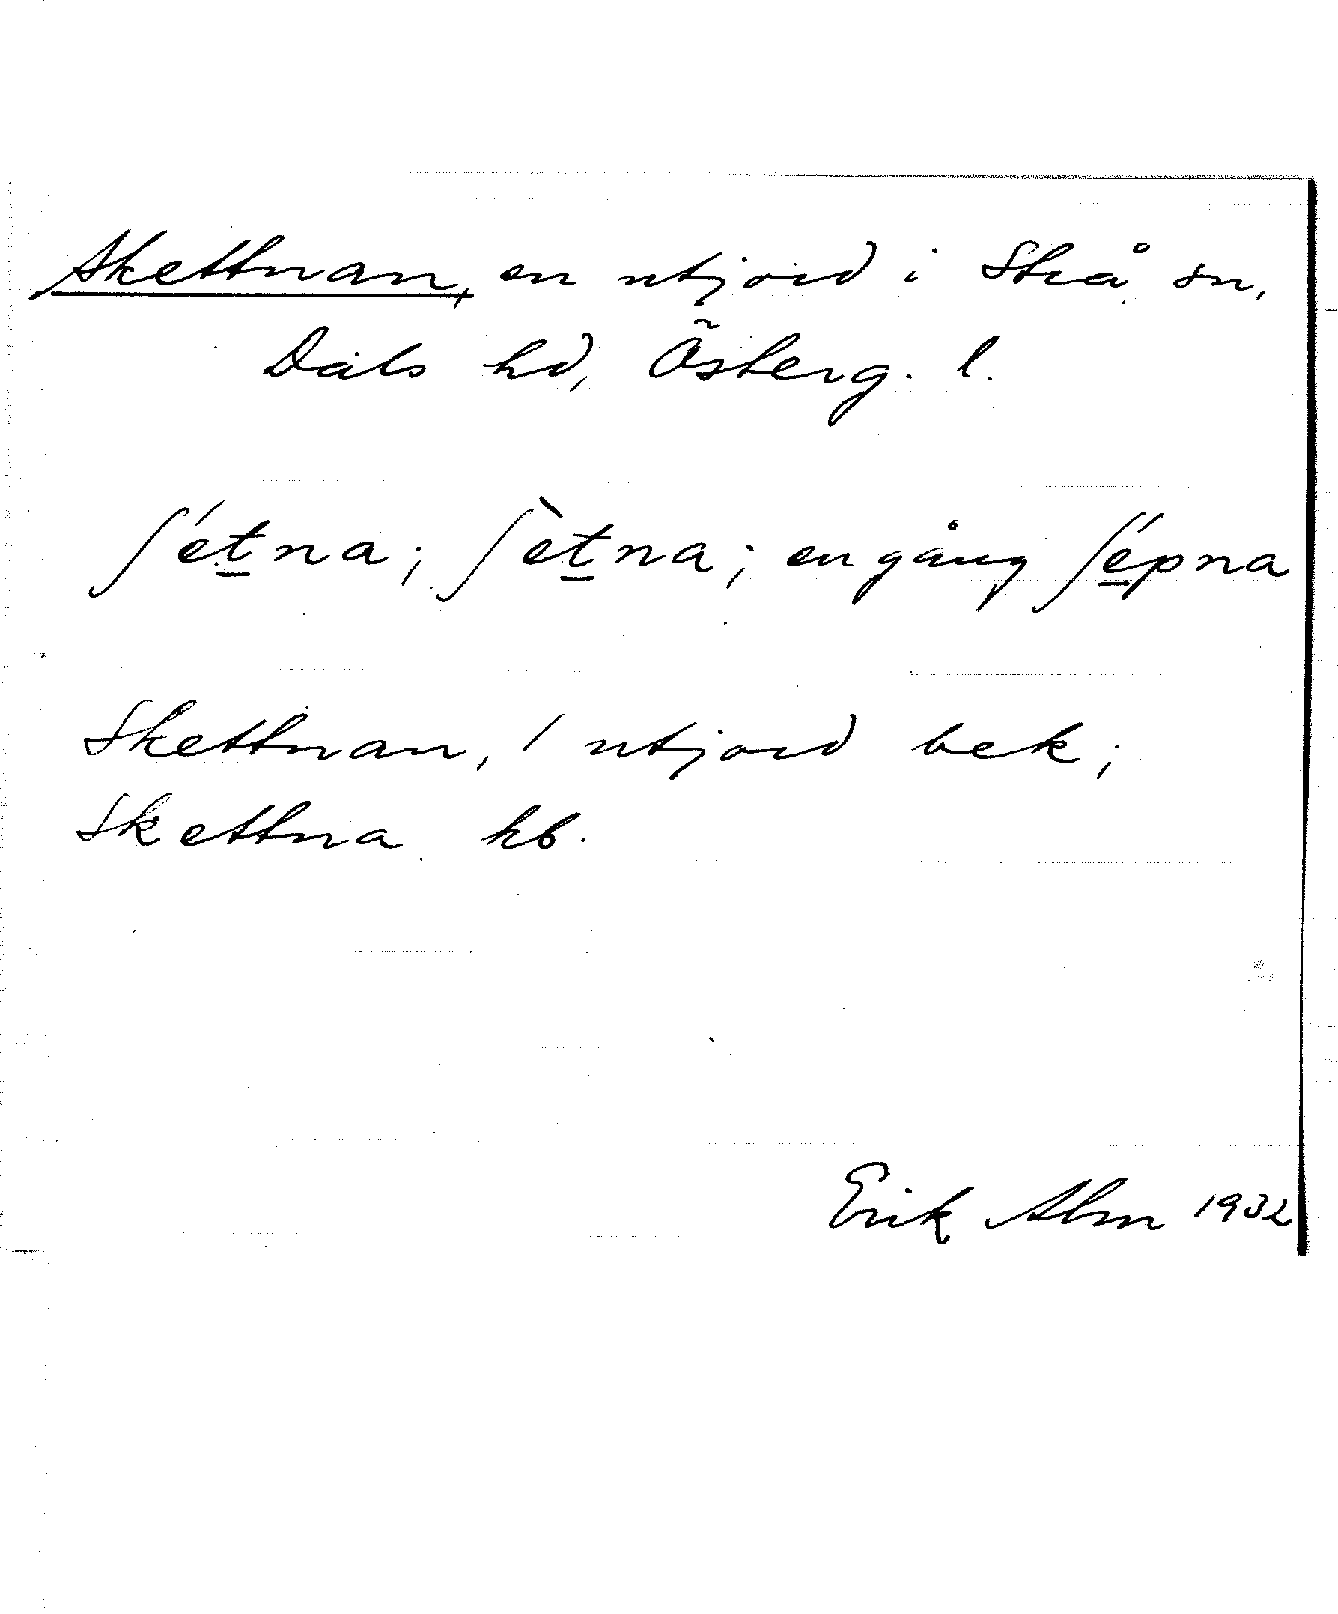 Skettnan, en utjord i Strå sn,
Dals hd, Österg. l.
ʃét̲na; ʃèt̲na; en gång ʃé̲pna
Skettnan, 1 utjord bek;
Skettna hb.
Erik Alm 1932